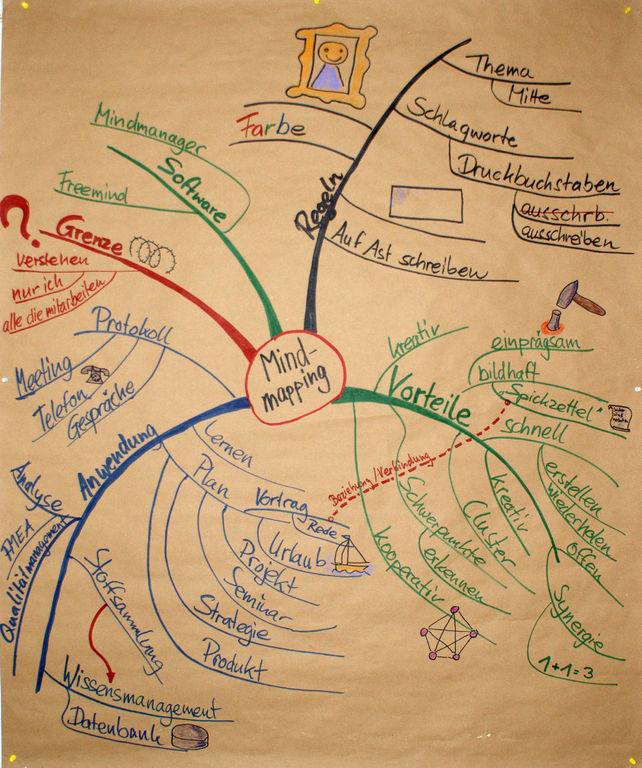 Mind-
mapping
Regeln
Thema
Mitte
Schlagworte
Druckbuchstaben
ausschrb.
ausschreiben
Farbe
Auf Ast schreiben
Vorteile
kreativ
einprägsam
bildhaft
"Spickzettel"
schnell
erstellen
wiederholen
offen
kreativ
Cluster
Schwerpunkte
erkennen
kooperativ
Synergie
1+1=3
Beziehung/Verbindung
Anwendung
Protokoll
Meeting
Telefon
Gespräche
lernen
Plan
Vortrag
Rede
Urlaub
Projekt
Seminar
Strategie
Produkt
Analyse
FMEA
Qualitätmanagement
Stoffsammlung
Wissensmanagement
Datenbank
Grenze
?
verstehen
nur ich
alle die mitarbeiten
Software
Mindmanager
Freemind